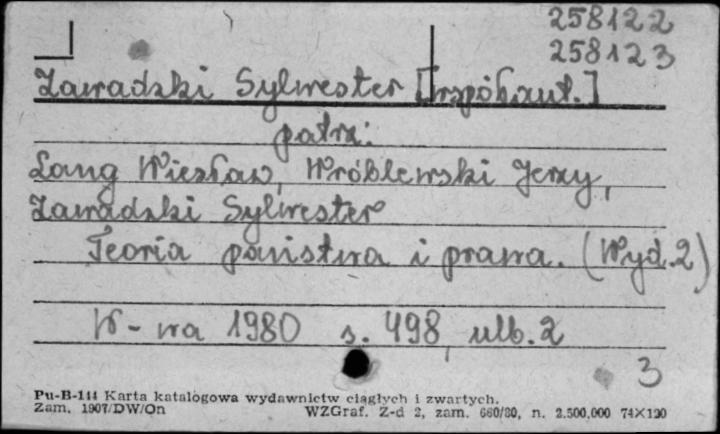 258122
258123
Zawadzki Sylwester [współaut.]
patrz:
Lang Wiesław, Wróblewski Jerzy,
Zawadzki Sylwester
Teoria państwa i prawa. (Wyd. 2)
W-wa 1980 s. 498, ulb. 2
3
Pu-B-144 Karta katalogowa wydawnictw ciągłych i zwartych.
Zam. 1907/DW/On WZGraf. Z-d 2, zam. 660/80, n. 2.500.000 74×120